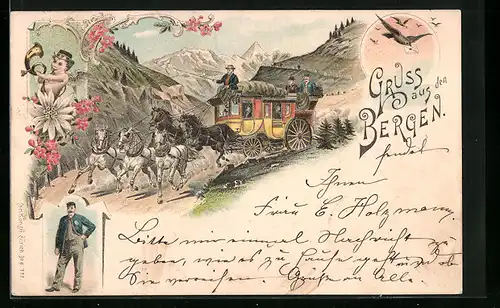 Gruss aus den
Bergen.
sendet
Ihnen
Frau E. Holzmann.
Bitte mir einmal Nachricht zu
geben, wie es zu Hause geht und ob
Sie verreisen. Grüße an Alle.